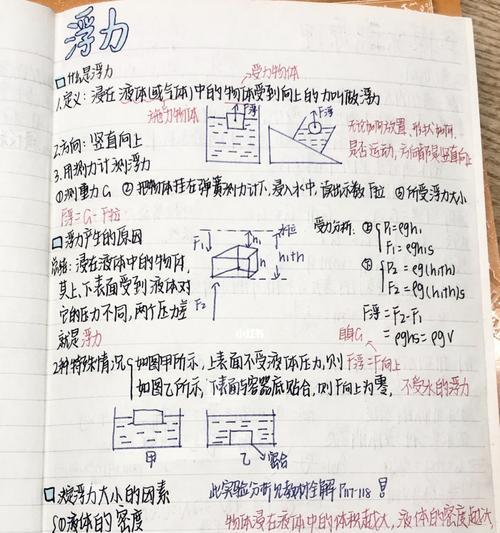 浮力
什么是浮力
受力物体
1.定义:浸在液体(或气体)中的物体受到向上的力叫做浮力
施力物体
F浮
F浮
无论如何放置、形状如何、
是否运动,方向都是竖直向上
2.方向:竖直向上
3.用测力计测浮力
①测重力G ②把物体挂在弹簧测力计下,浸入水中,读出示数F拉 ③所受浮力大小
F浮=G-F拉
浮力产生的原因
总结:浸在液体中的物体,
其上、下表面受到液体对
它的压力不同,两个压力差
就是浮力
F1
h1
h
h1+h
F2
受力分析:
P1=ρgh1
F1=ρgh1s
P2=ρg(h1+h)
F2=ρg(h1+h)s
F浮=F2-F1
=ρghs=ρgV
小红书
2种特殊情况
如图甲所示,上表面不受液体压力,则F浮=F向上
如图乙所示,下表面与容器底贴合,则F向上为零,不受水的浮力
甲
乙
密合
决定浮力大小的因素
此实验分析见教材全解P117-118
①液体的密度
物体浸在液体中的体积越大,液体的密度越大